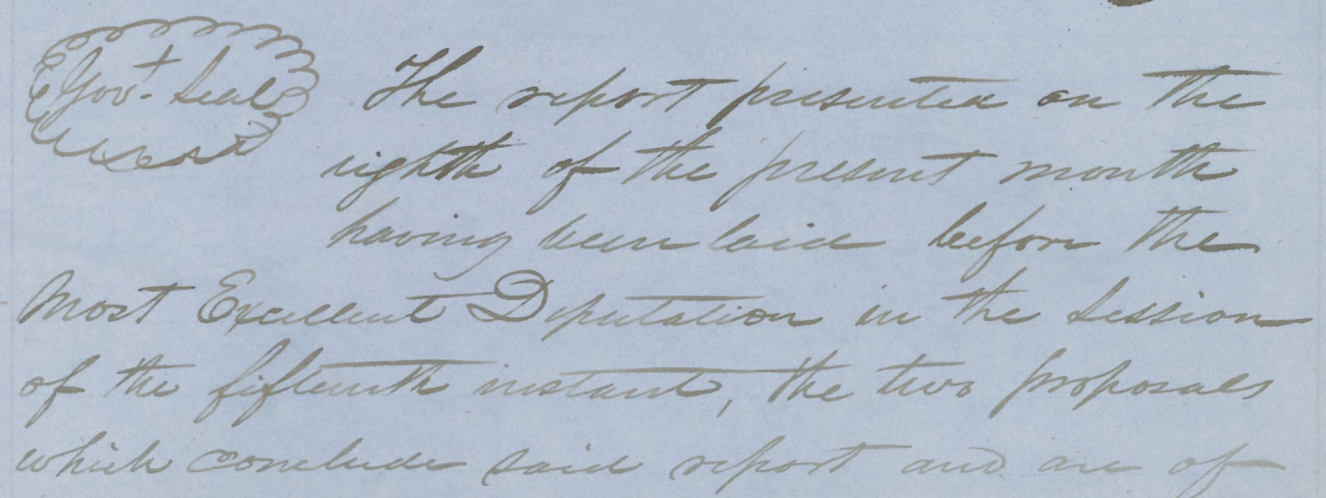 Govt. Seal
The report presented on the
eighth of the present month
having been laid before the
Most Excellent Deputation in the Session
of the fifteenth instant, the two proposals
which conclude said report and are of